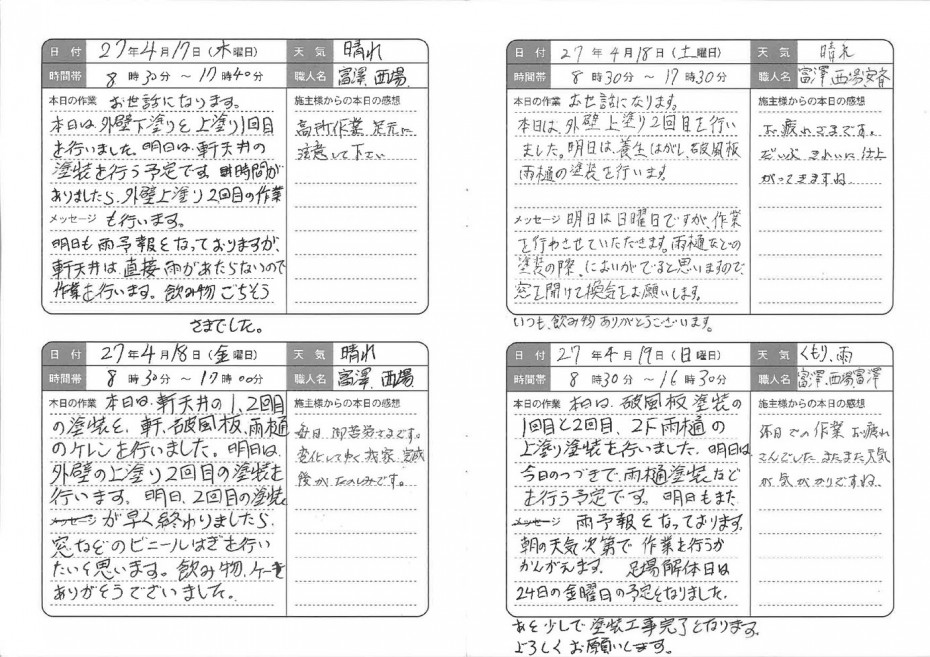 日付 27年4月17日(木曜日) 天気 晴れ
時間帯 8時30分 ～ 17時40分 職人名 富澤、西場
本日の作業 お世話になります。
本日は外壁下塗りと上塗り1回目
を行いました。明日は、軒天井の
塗装を行う予定です。時間が
ありましたら、外壁上塗り2回目の作業
メッセージ も行います。
明日も雨予報となっておりますが、
軒天井は、直接雨があたらないので
作業を行います。飲み物ごちそう
さまでした。
施主様からの本日の感想
高所作業、足元に
注意して下さい
日付 27年4月18日(金曜日) 天気 晴れ
時間帯 8時30分 ～ 17時00分 職人名 富澤、西場
本日の作業 本日は、軒天井の1、2回目
の塗装と、軒、破風板、雨樋
のケレンを行いました。明日は、
外壁の上塗り2回目の塗装を
行います。明日、2回目の塗装
メッセージ が早く終わりましたら、
窓などのビニールはぎを行い
たいと思います。飲み物、ケーキ
ありがとうございました。
施主様からの本日の感想
毎日、御苦労さまです。
変化してゆく我家、完成
後が、たのしみです。
日付 27年4月18日(土曜日) 天気 晴れ
時間帯 8時30分 ～ 17時30分 職人名 富澤、西場、安斉
本日の作業 お世話になります。
本日は、外壁上塗り2回目を行い
ました。明日は、養生はがし、破風板
雨樋の塗装を行います
メッセージ 明日は日曜日ですが、作業
を行わさせていただきます。雨樋などの
塗装の際、においがでると思いますので、
窓を開けて換気をお願いします。
いつも、飲み物ありがとうございます。
施主様からの本日の感想
お疲れさまです。
だいぶ きれいに仕上
がってきますね
日付 27年4月19日(日曜日) 天気 くもり、雨
時間帯 8時30分 ～ 16時30分 職人名 富澤、西場、冨澤
本日の作業 本日は、破風板塗装の
1回目と2回目、2F雨樋の
上塗り塗装を行いました。明日は、
今日のつづきで、雨樋塗装など
を行う予定です。明日もまた
メッセージ 雨予報となっております。
朝の天気次第で 作業を行うか
かんがえます。 足場解体日は
24日の金曜日の予定となりました。
あと少しで塗装工事完了となります。
よろしくお願いします。
施主様からの本日の感想
休日での作業 お疲れ
さんでした またまた天気
が気がかりですね。